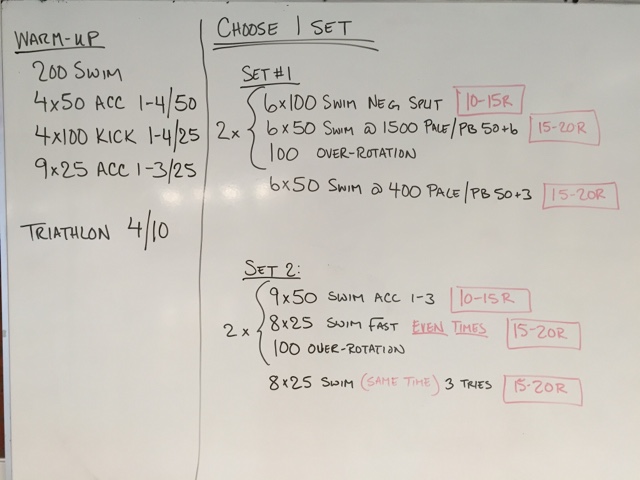 WARM-UP
200 SWIM
4x50 ACC 1-4/50
4x100 KICK 1-4/25
9x25 ACC 1-3/25
TRIATHLON 4/10
CHOOSE 1 SET
SET #1
2x
6x100 SWIM NEG SPLIT 10-15R
6x50 SWIM @ 1500 PALE/PB 50+6 15-20R
100 OVER-ROTATION
6x50 SWIM @ 400 PALE/PB 50+3 15-20R
SET 2:
2x
9x50 SWIM ACC 1-3 10-15R
8x25 SWIM FAST EVEN TIMES 15-20R
100 OVER-ROTATION
8x25 SWIM (SAME TIME) 3 TRIES 15-20R